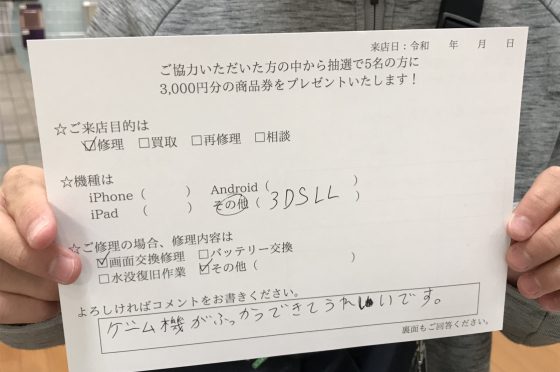 来店日：令和　　年　　月　　日
ご協力いただいた方の中から抽選で5名の方に
3,000円分の商品券をプレゼントいたします！
☆ご来店目的は
☑修理 □買取 □再修理 □相談
☆機種は
iPhone（　　　） Android（　　　　　）
iPad（　　　） その他（3DSLL　）
☆ご修理の場合、修理内容は
☑画面交換修理 □バッテリー交換
□水没復旧作業 ☑その他（　　　　　）
よろしければコメントをお書きください。
ゲーム機がふっかつできてうれしいです。
裏面もご回答ください。